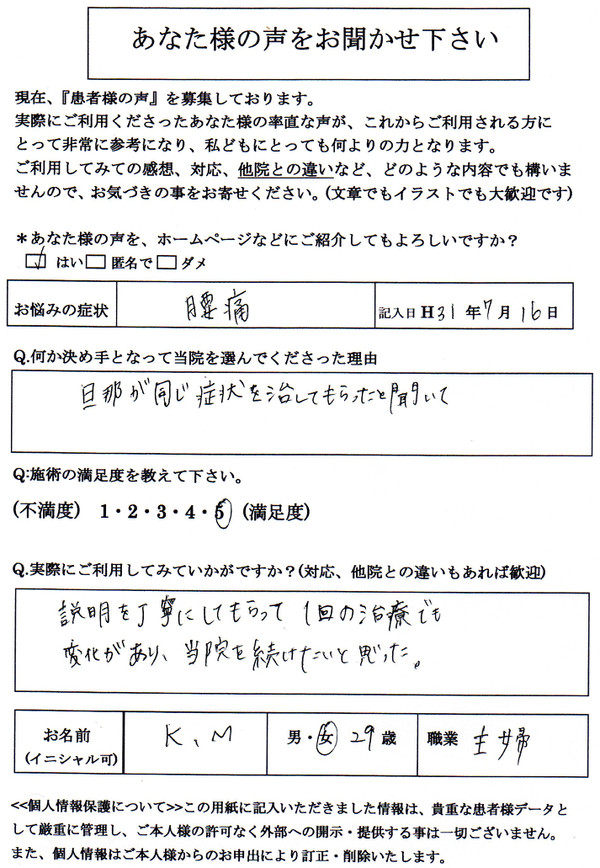 あなた様の声をお聞かせ下さい
現在、『患者様の声』を募集しております。
実際にご利用くださったあなた様の率直な声が、これからご利用される方に
とって非常に参考になり、私どもにとっても何よりの力となります。
ご利用してみての感想、対応、他院との違いなど、どのような内容でも構いま
せんので、お気づきの事をお寄せください。(文章でもイラストでも大歓迎です)
＊あなた様の声を、ホームページなどにご紹介してもよろしいですか？
☑はい□匿名で□ダメ
お悩みの症状 腰痛 記入日H31年7月16日
Q.何か決め手となって当院を選んでくださった理由
旦那が同じ症状を治してもらったと聞いて
Q:施術の満足度を教えて下さい。
(不満度) 1・2・3・4・5 (満足度)
Q.実際にご利用してみていかがですか？(対応、他院との違いもあれば歓迎)
説明を丁寧にしてもらって1回の治療でも
変化があり、当院を続けたいと思った。
お名前 K、M 男・女 29歳 職業 主婦
(イニシャル可)
<<個人情報保護について>>この用紙に記入いただきました情報は、貴重な患者様データと
して厳重に管理し、ご本人様の許可なく外部への開示・提供する事は一切ございません。
また、個人情報はご本人様からのお申出により訂正・削除いたします。